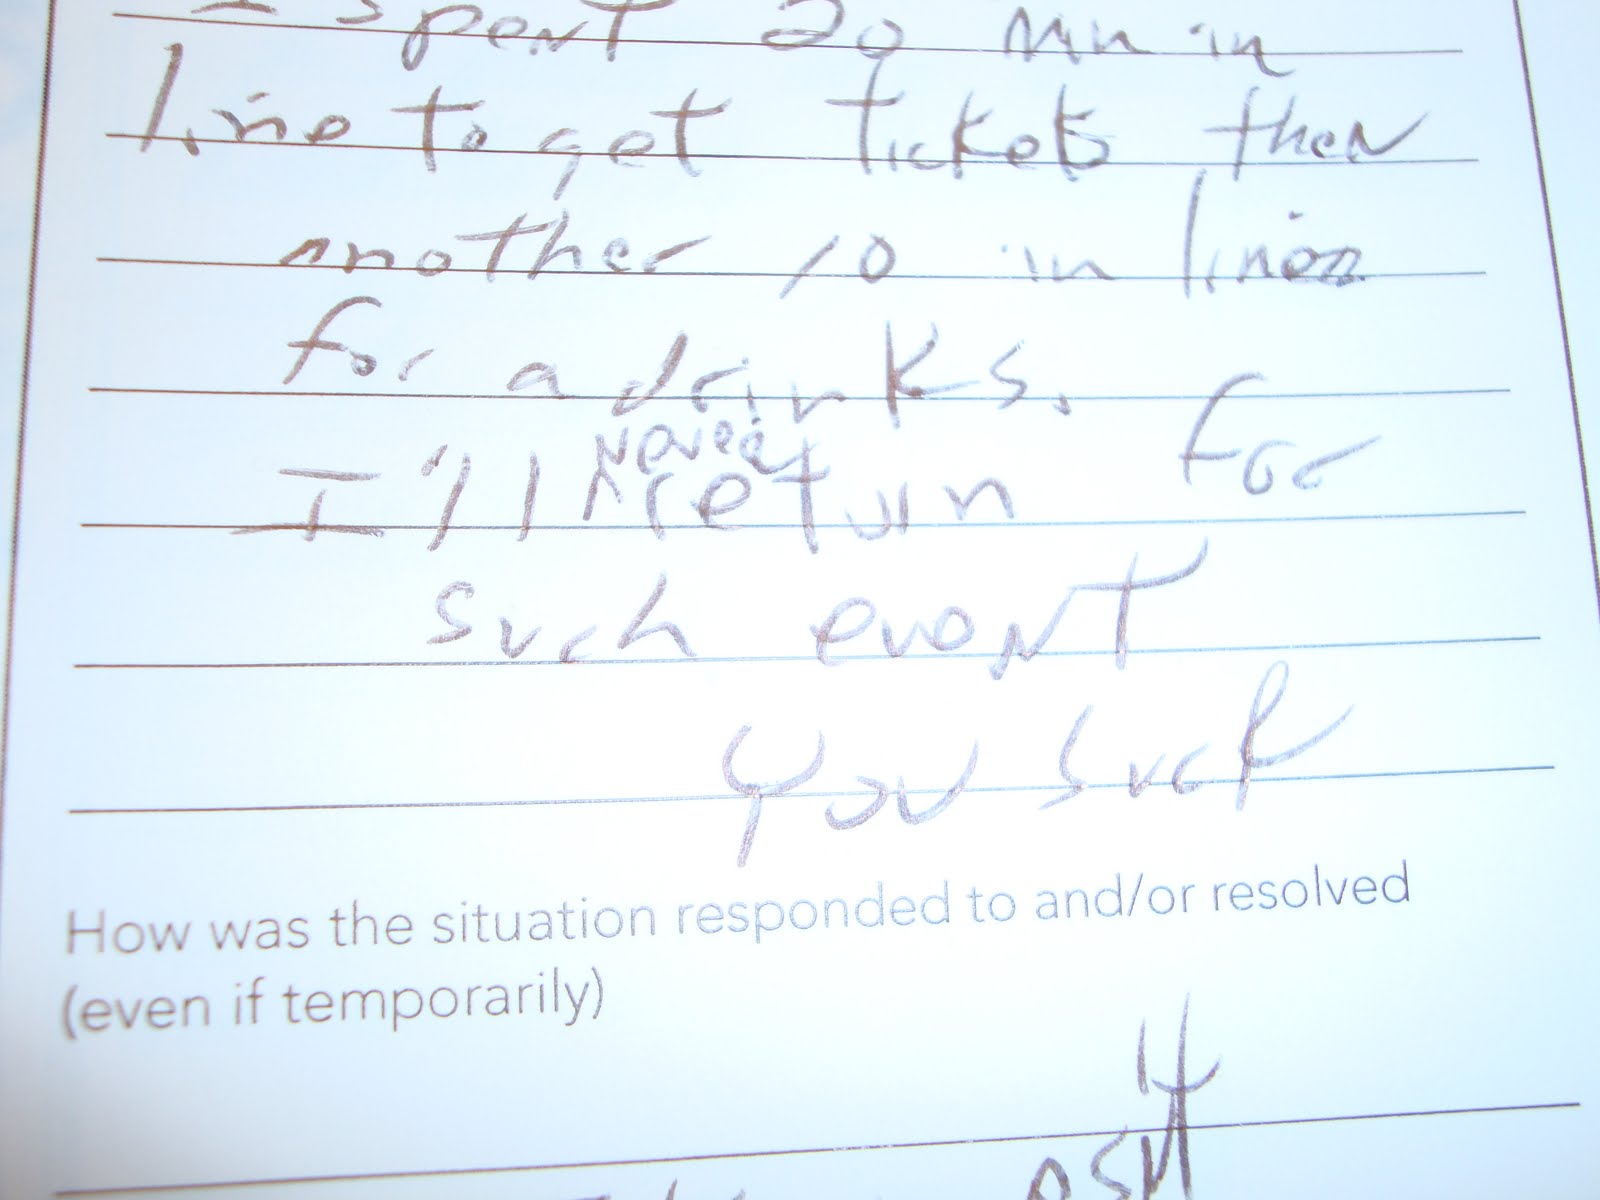 I spent 20 min in
line to get tickets then
another 10 in line
for a drinks.
I'll never return for
such event
you suck
How was the situation responded to and/or resolved
(even if temporarily)